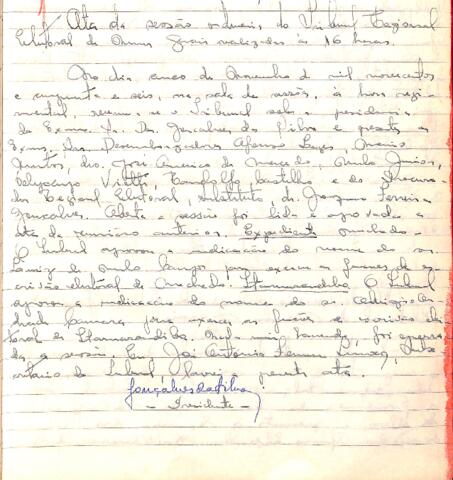 Ata da sessão ordinária, do Tribunal Regional
Eleitoral de Minas Gerais realizada às 16 horas.
No dia cinco de novembro de mil novecentos
e cinquenta e seis, na sala de sessões, à hora regi-
mental, reuniu-se o Tribunal sob a presidência
do Exmo. Sr. Des. Gonçalves da Silva e presentes os
Exmos. Srs. Desembargadores Afonso Lages, Onofre
Mendes, drs. José Américo de Macedo, Paula Júnior,
Vitta, Castilho e do Procura-
dor Regional Eleitoral, substituto, dr. Joaquim Ferreira
Gonçalves. Aberta a sessão foi lida e aprovada a
ata da reunião anterior. Expediente
O Tribunal aprovou a indicação do nome do sr.
de Paula Campos para exercer as funções de es-
crivão eleitoral de Machado. Itamarandiba O Tribunal
aprovou a indicação do nome do sr.
Câmara para exercer as funções de escrivão elei-
toral de Itamarandiba. Nada mais havendo, foi encerra-
da a sessão. Eu, José Antônio Secre-
tário do Tribunal, lavrei a presente ata.
Gonçalves da Silva
- Presidente -